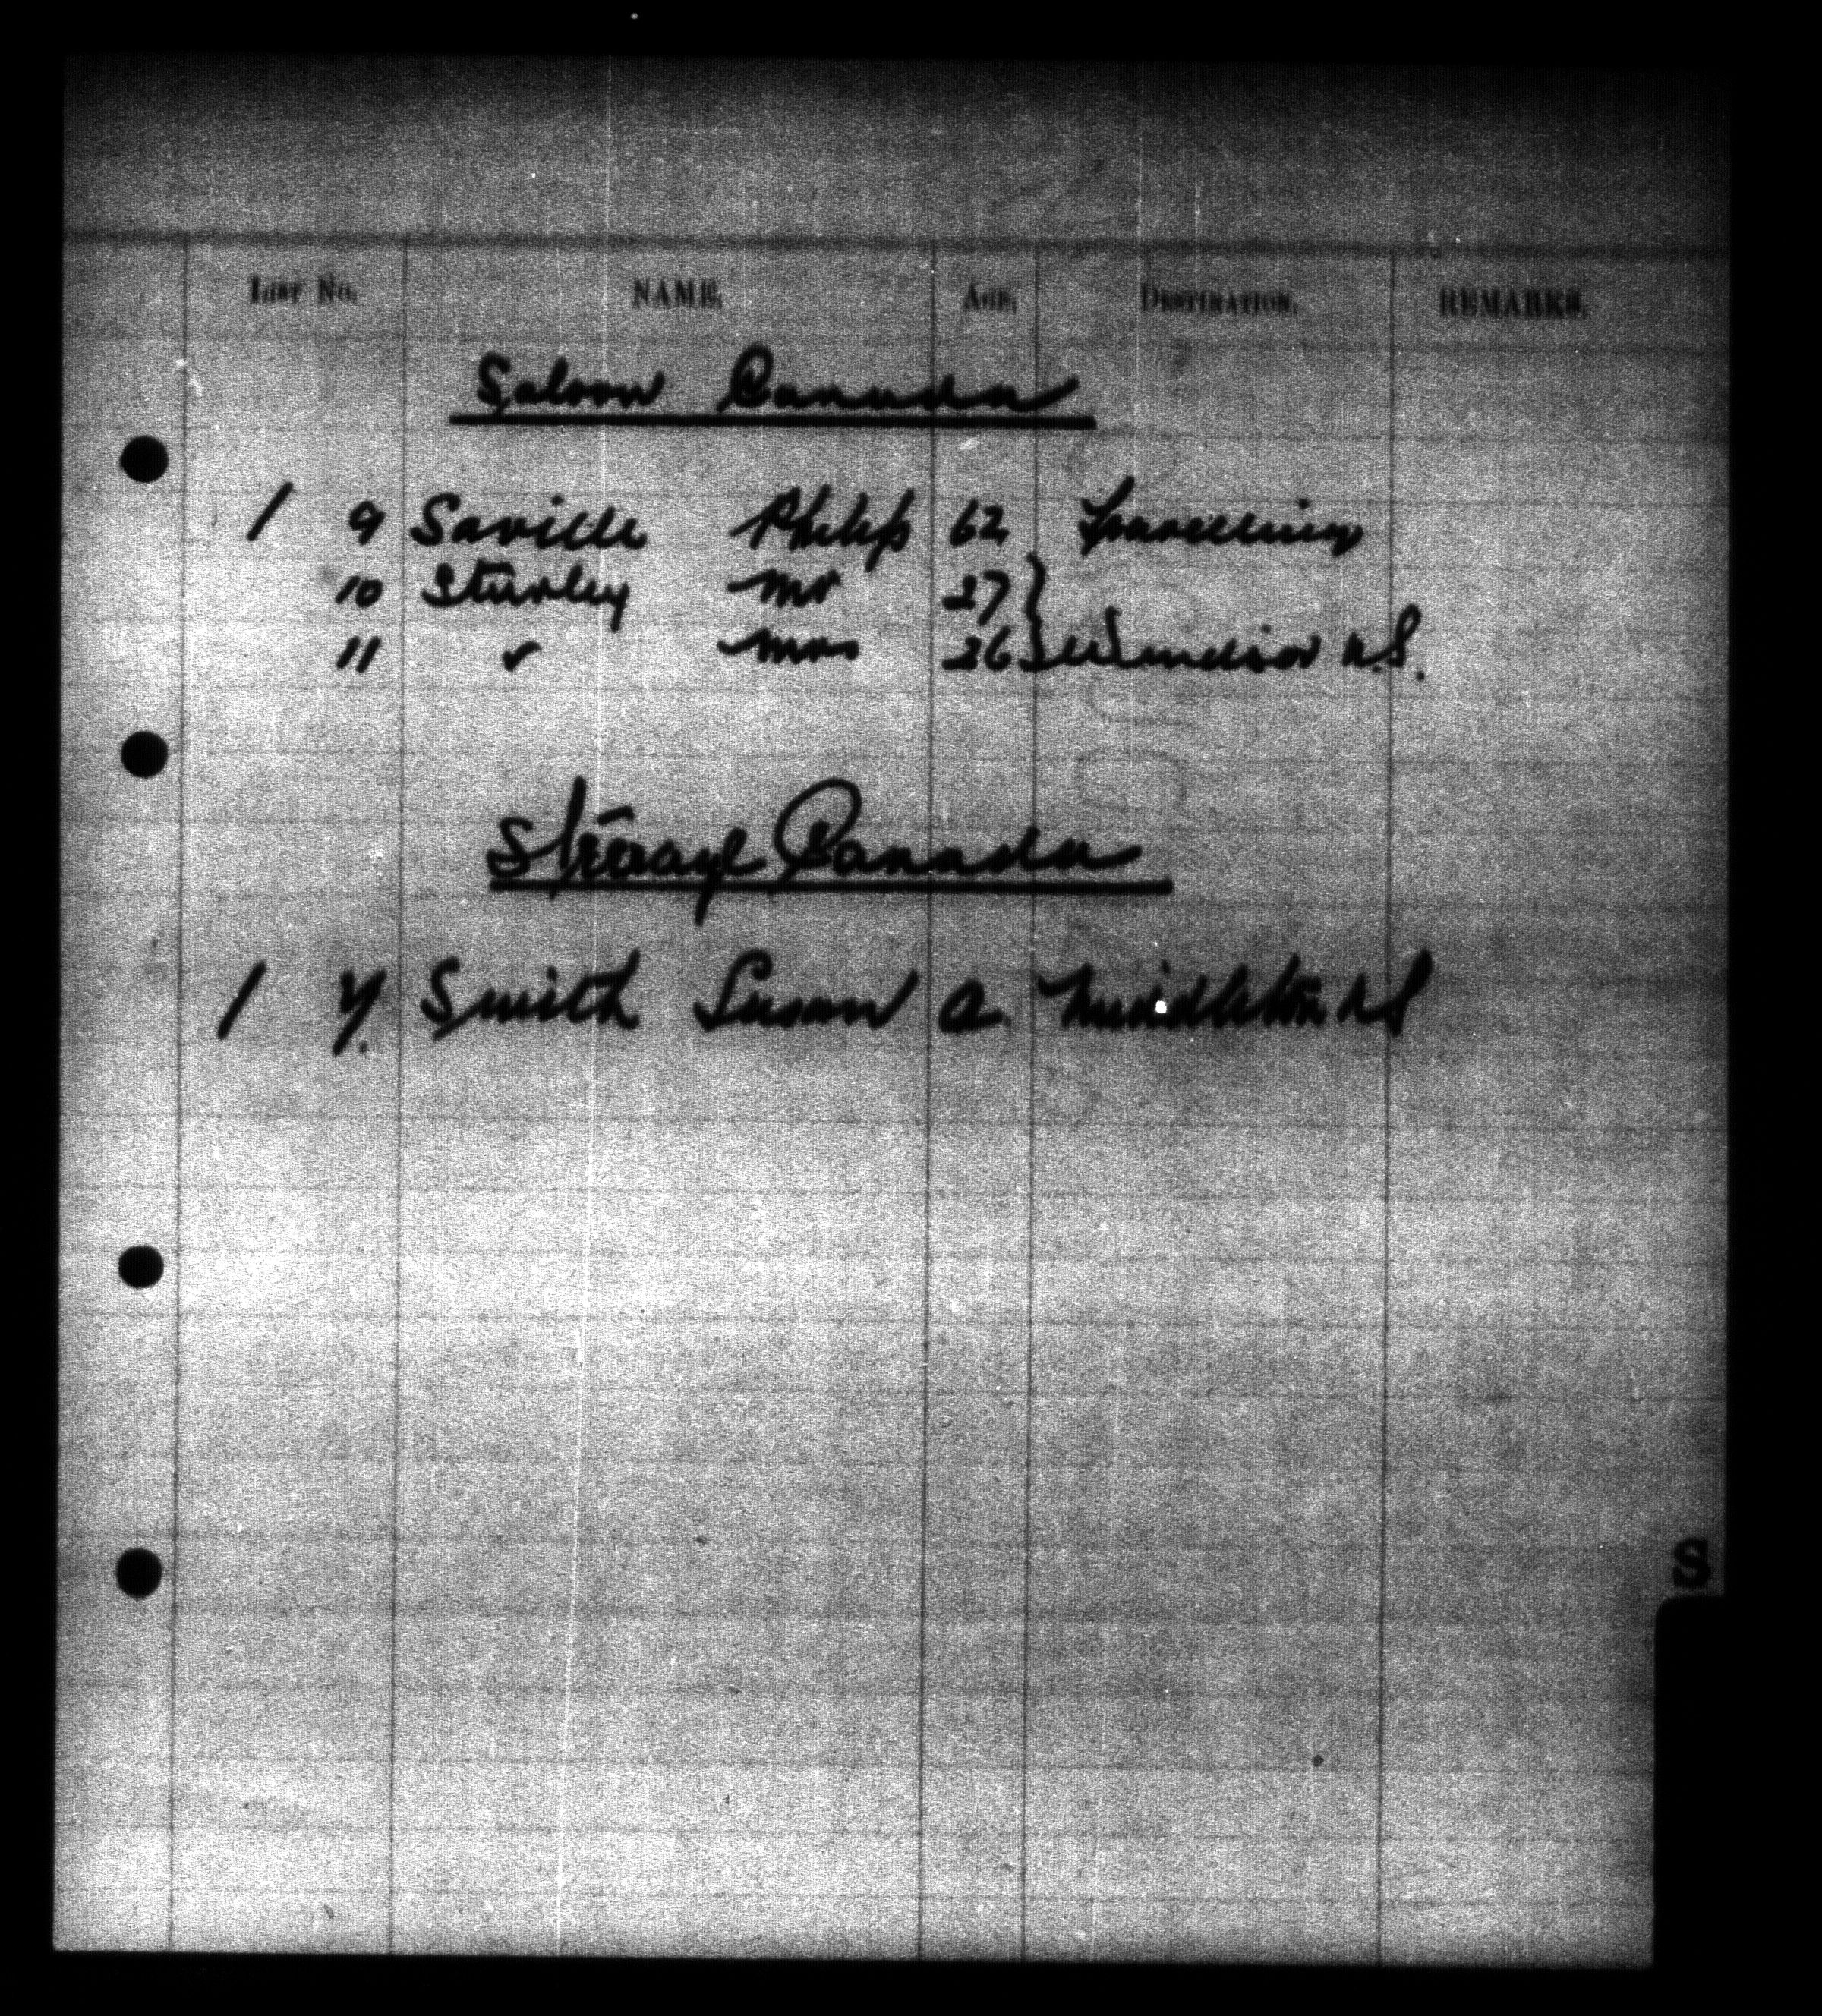 LIST No. NAME. AGE. DESTINATION. REMARKS.
Saloon Canada
1 9 Saville Philip 62 Travelling
10 Sturley Mr 27 }
11 " Mrs 26 } Windsor N.S.
Steerage Canada
1 y. Smith Susan a. Middleton N S
S